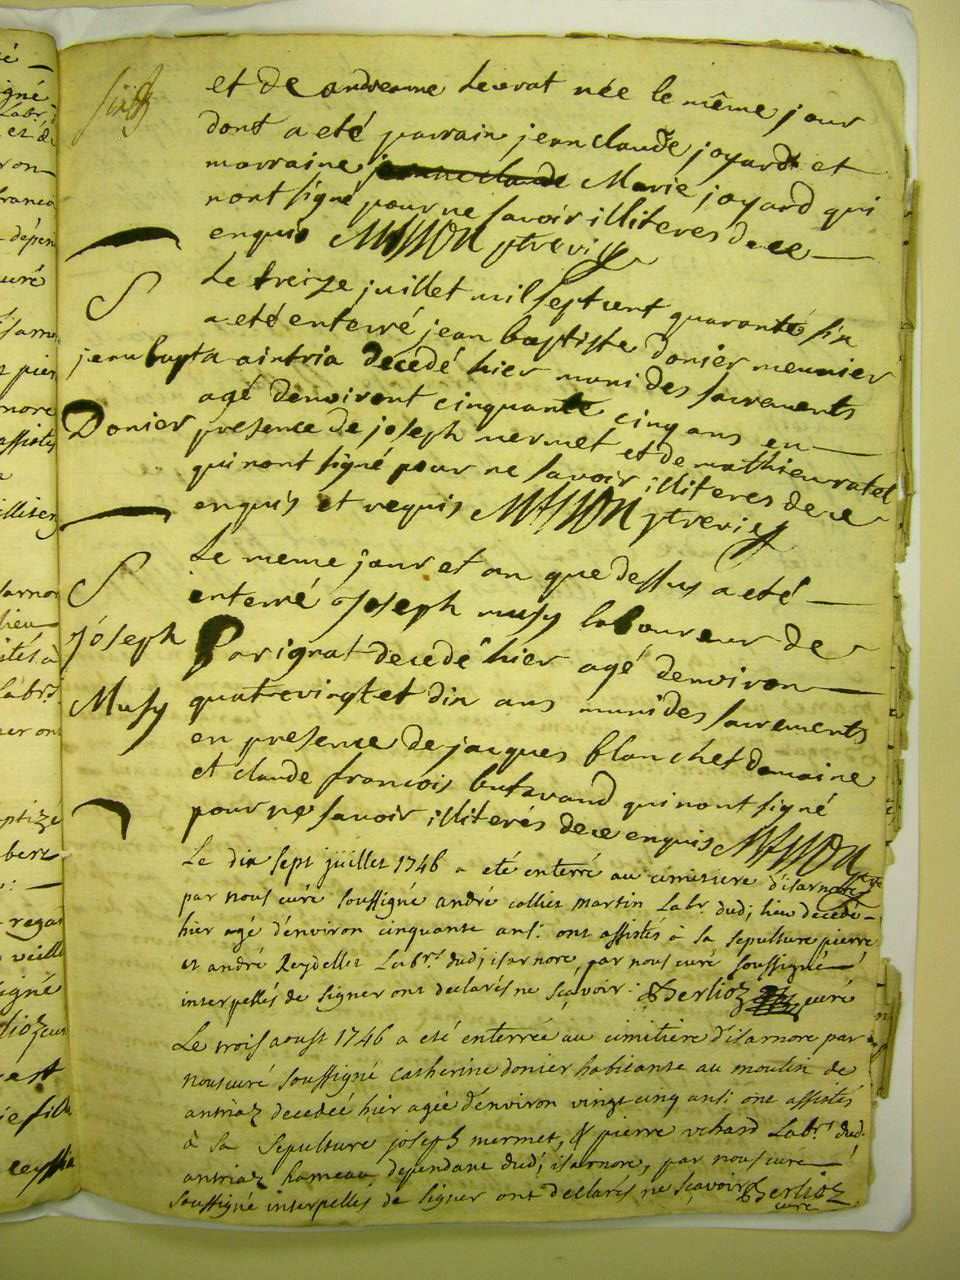 et de andreanne Levrat née le même jour
dont a eté parrain jean claude joyard et
marraine jeanne claude Marie joyard qui
nont signé pour ne savoir illiterés de ce
enquis MASSON ptre vic
S
Le treize juillet mil sept cent quarante six
a eté enterré jean baptiste donier meunier
jean bapt
a aintria decedé hier muni des sacrements
agé denviront cinquante cinq ans en
Donier
presence de joseph mermet et de mathieu ratel
qui nont signé pour ne savoir illiteres de ce
enquis et requis MASSON ptre vic
S
Le meme jour et an que dessus a eté
enterré joseph musy laboureur de
joseph
Parignat decedé hier agé denviron
Musy
quatrevingt et dix ans muni des sacrements
en presence de jacques blanchet domaine
et claude francois butavand qui nont signé
pour ne savoir illiterés de ce enquis MASSON
Le dix sept juillet 1746 a eté enterré au cimetiere d'isarnore
par nous curé soussigné andré colliet martin Labr. dudj lieu decedé
hier agé d'environ cinquante ans: ont assistés à sa sepulture pierre
et andré Reydellet Labrs. dudj isarnore, par nous curé soussigné
interpellés de signer ont declarés ne sçavoir: Berlioz curé
Le trois aoust 1746 a eté enterrée au cimitiere d'isarnore par
nous curé soussigné catherine donier habitante au moulin de
antriaz decedeé hier agée d'environ vingt cinq ans: ont assistés
à sa sepulture joseph mermet, & pierre vehard Labrs. dud.
antriaz hameau dependant dudj isarnore, par nous curé
soussigné interpelles de signer ont declarés ne sçavoir Berlioz
curé